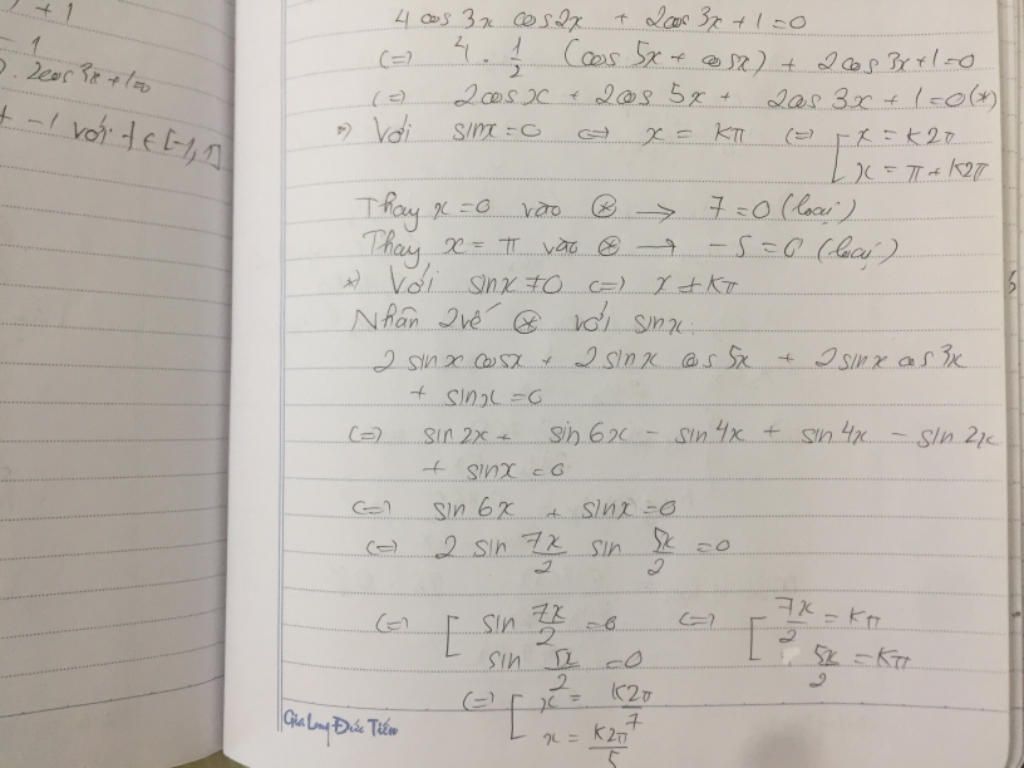 + 1
- 1
2cos 3x + 1 = 0
+ -1 với t ∈ [-1, 1]
4 cos 3x cos2x + 2cos 3x + 1 = 0
(=) 4 . 1/2 (cos 5x + cos x) + 2 cos 3x + 1 = 0
(=) 2 cos x + 2 cos 5x + 2cos 3x + 1 = 0 (*)
*) Với sinx = 0 (=) x = kπ (=) [ x = k2π
x = π + k2π
Thay x = 0 vào (*) → 7 = 0 (loại)
Thay x = π vào (*) → -5 = 0 (loại)
*) Với sinx ≠ 0 (=) x ≠ kπ
Nhân 2 vế (*) với sinx:
2 sinx cosx + 2 sinx cos 5x + 2 sinx cos 3x
+ sinx = 0
(=) sin 2x + sin 6x - sin 4x + sin 4x - sin 2x
+ sinx = 0
(=) sin 6x + sinx = 0
(=) 2 sin 7x/2 sin 5x/2 = 0
(=) [ sin 7x/2 = 0 (=) [ 7x/2 = kπ
sin 5x/2 = 0 5x/2 = kπ
(=) [ x = k2π/7
x = k2π/5
Gia Long Đức Tiến